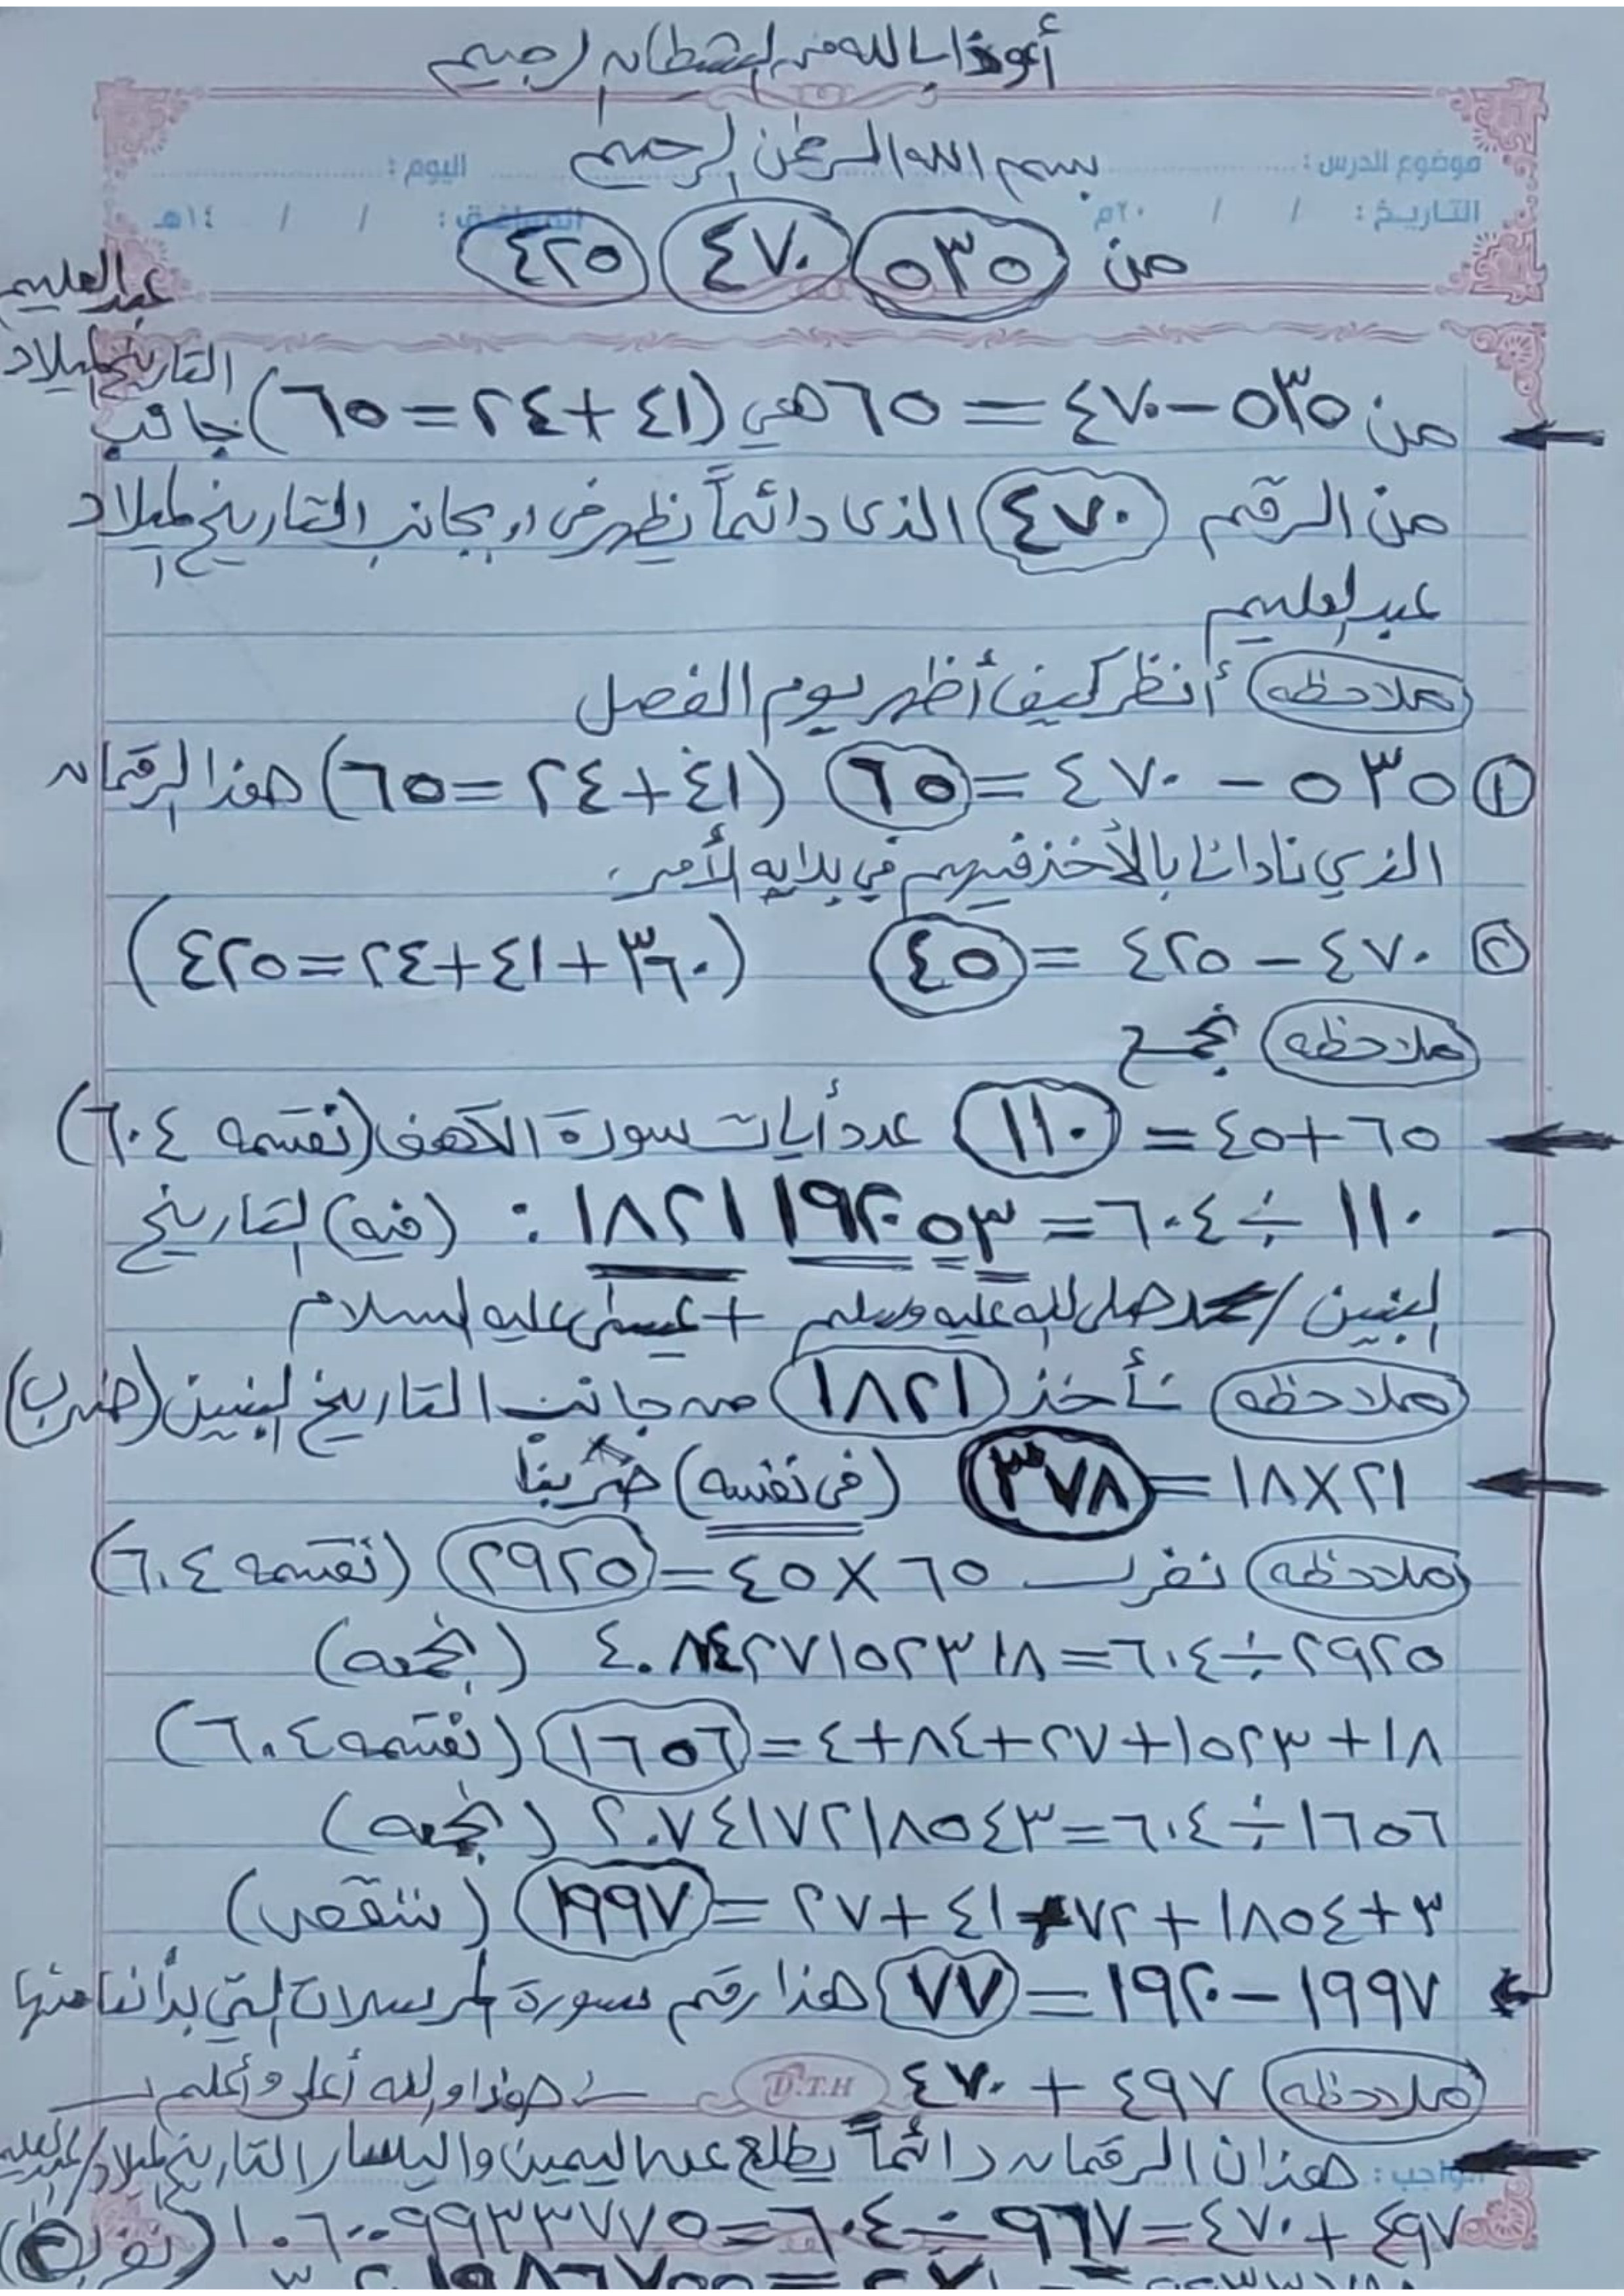 أعوذ بالله من الشيطان الرجيم
بسم الله الرحمن الرحيم
موضوع الدرس : اليوم :
التاريخ : / / ٢٠م الموافق : / / ١٤هـ
من ٥٣٥ ٤٧٠ ٤٢٥
عبد العليم
التاريخ لميلاد
من ٥٣٥ - ٤٧٠ = ٦٥ هي (٤١ + ٢٤ = ٦٥) جانب
من الرقم ٤٧٠ الذى دائماً نظهر في او بجانب التاريخ لميلاد
عبد العليم
ملاحظه أنظر كيف أظهر يوم الفصل
١ ٥٣٥ - ٤٧٠ = ٦٥ (٤١ + ٢٤ = ٦٥) هذا الرقمان
الذي نادانا بالأخذ فيهم في بدايه الأمر.
٢ ٤٧٠ - ٤٢٥ = ٤٥ (٣٦٠ + ٤١ + ٢٤ = ٤٢٥)
ملاحظه نجمع
٦٥ + ٤٥ = ١١٠ عدد أيات سورة الكهف (نقسمه ٦٠٤)
١١٠ ÷ ٦٠٤ = ١٨٢١١٩٢٠٥٣ : (فيه) التاريخ
لبنين / محمد صلى الله عليه وسلم + عيسى عليه السلام
ملاحظه نأخذ ١٨٢١ من جانب التاريخ لبنين (ضرب)
١٨ × ٢١ = ٣٧٨ (في نفسه) ضربنا
ملاحظه نضرب ٦٥ × ٤٥ = ٢٩٢٥ (نقسمه ٦٠٤)
٢٩٢٥ ÷ ٦٠٤ = ٤.٨٤٢٧١٥٢٣١٨ (نجمعه)
١٨ + ١٥٢٣ + ٢٧ + ٨٤ + ٤ = ١٦٥٦ (نقسمه ٦٠٤)
١٦٥٦ ÷ ٦٠٤ = ٢.٧٤١٧٢١٨٥٤٣ (نجمعه)
٣ + ١٨٥٤ + ٧٢ + ٤١ + ٢٧ = ١٩٩٧ (ننقص)
١٩٩٧ - ١٩٢٠ = ٧٧ هذا رقم سورة المرسلات التي بدأنا منها
ملاحظه ٤٩٧ + ٤٧٠ هذا والله أعلى وأعلم
D.T.H
الواجب : هذان الرقمان دائماً يطلع عن اليمين واليسار التاريخ لميلاد / عبد العليم
٤٩٧ + ٤٧٠ = ٩٦٧ ÷ ٦٠٤ = ١.٦٠٠٩٩٣٣٧٧٥